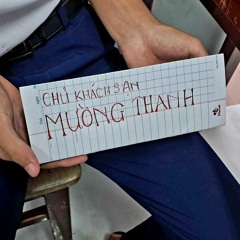 CHỦ KHÁCH SẠN
MƯỜNG THANH